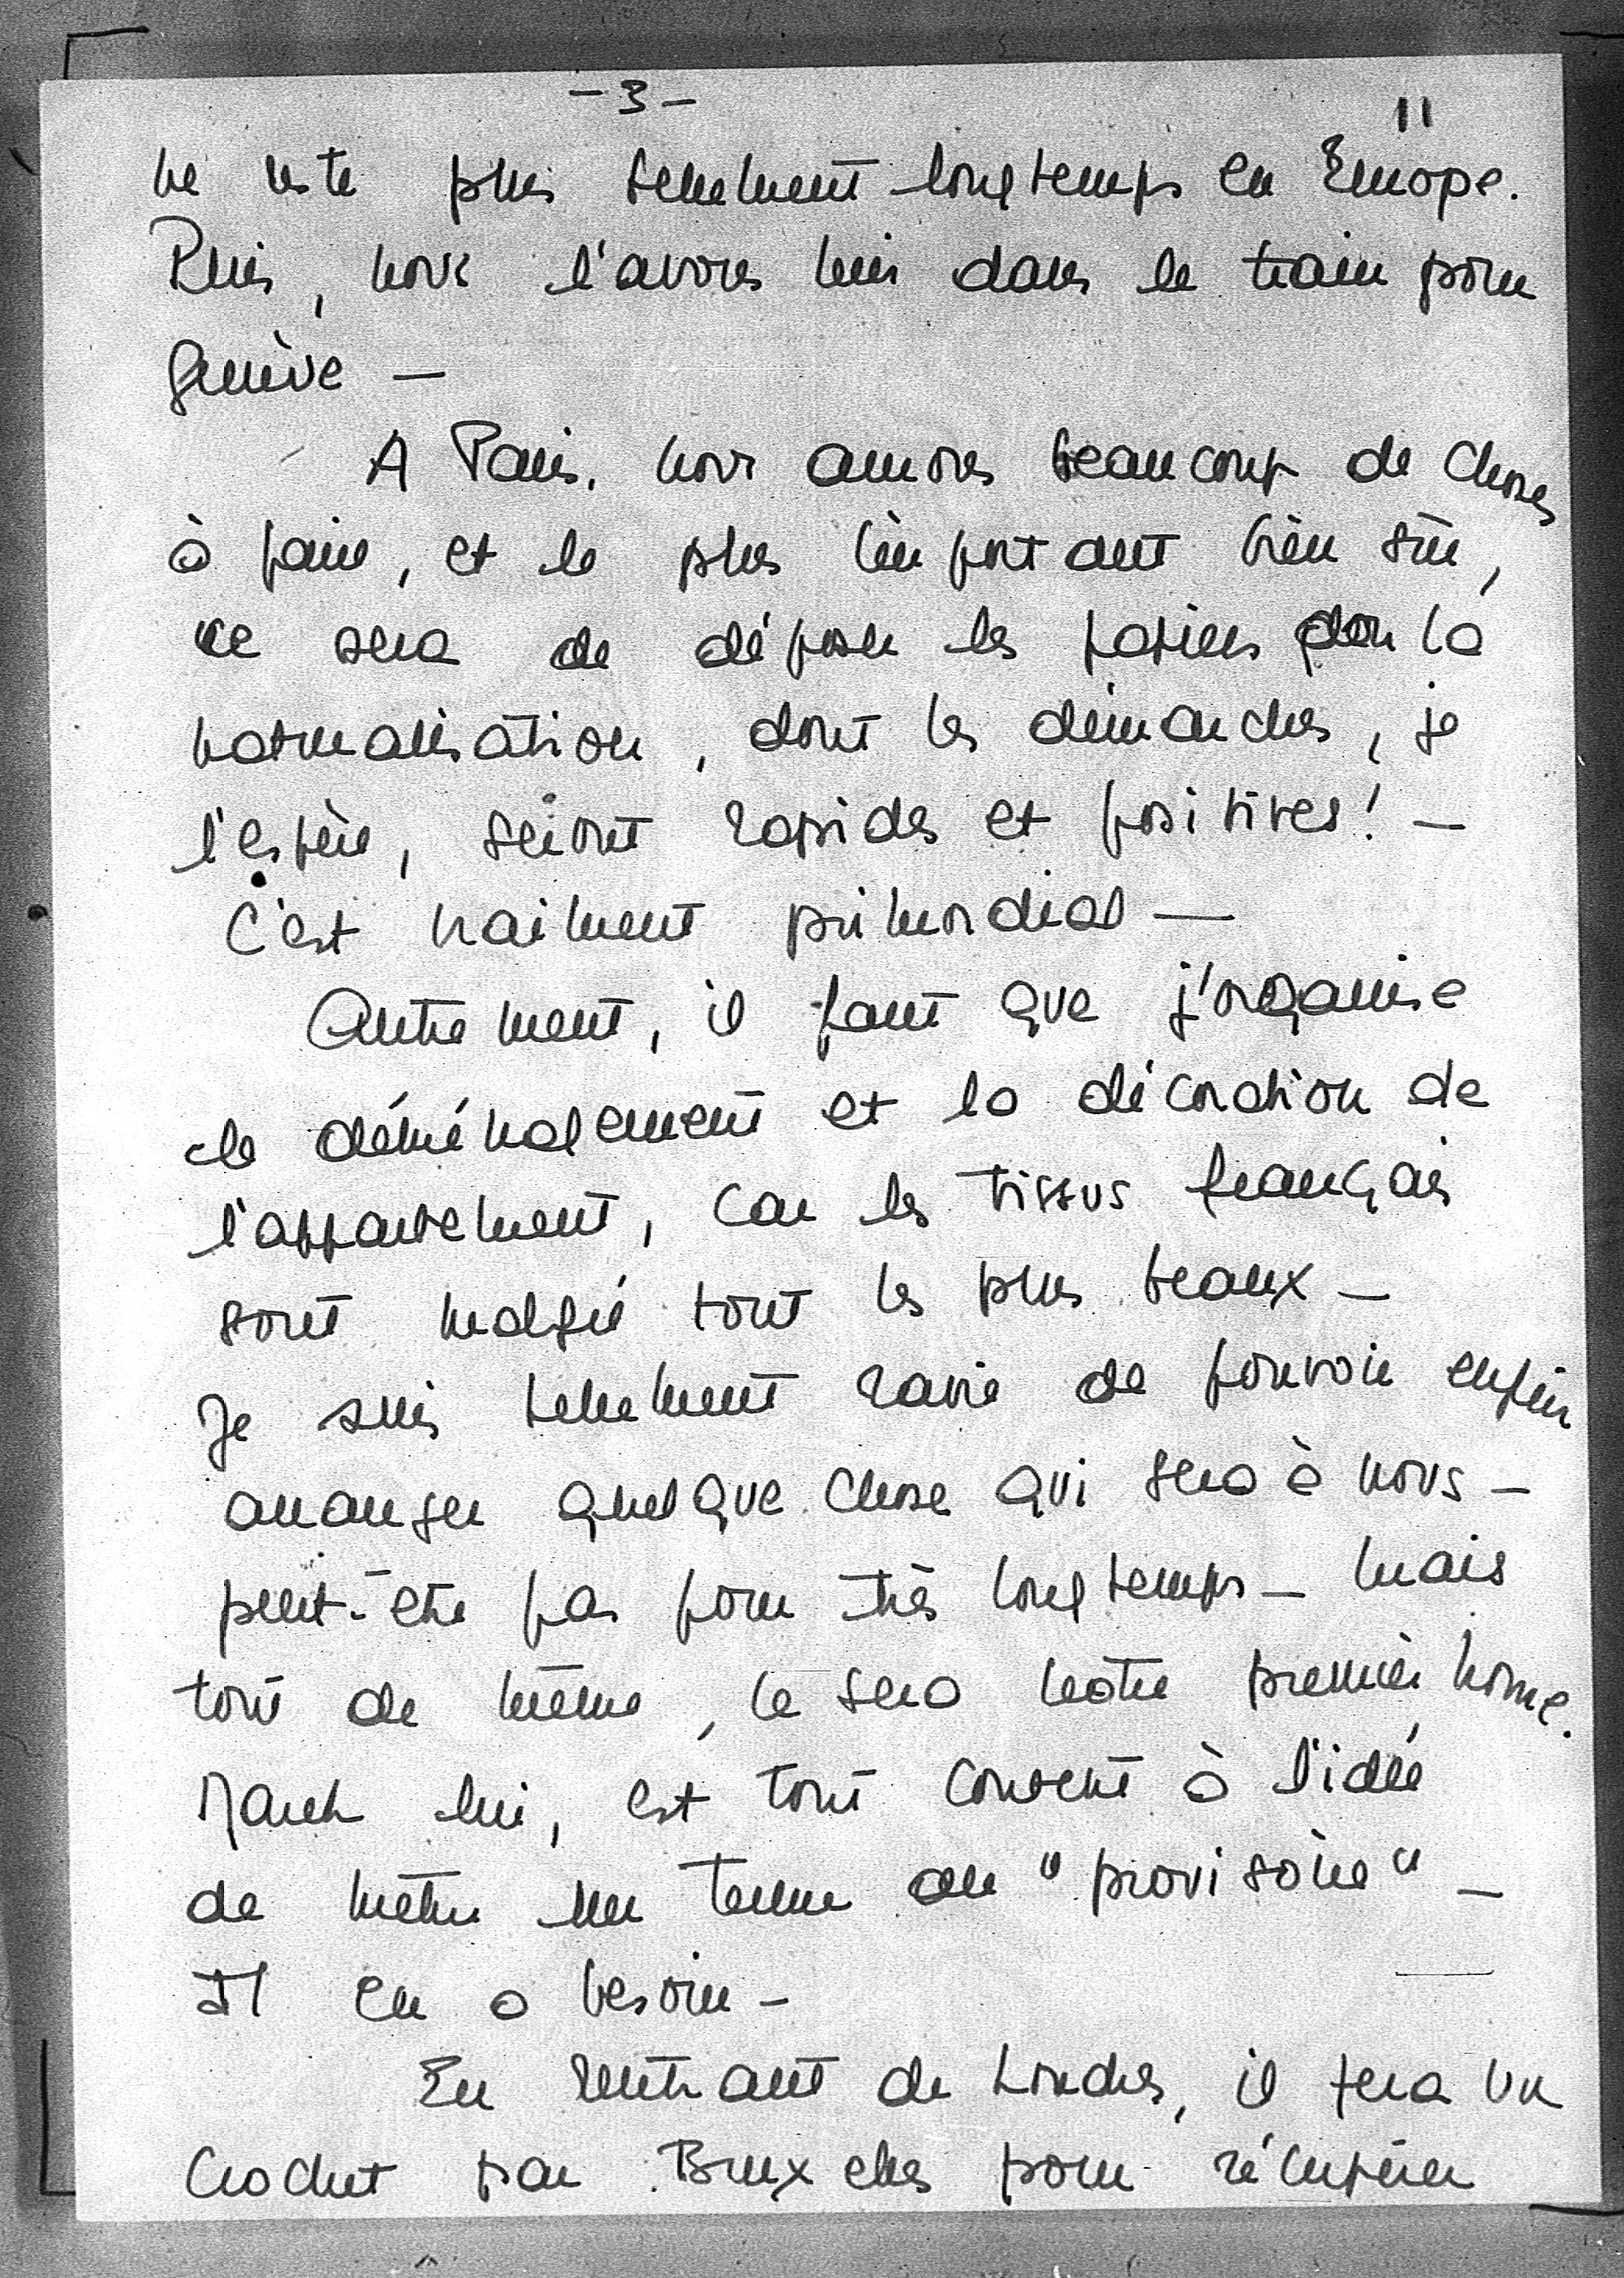 - 3 -
11
ne reste plus tellement longtemps en Europe.
Puis, nous l'avons mis dans le train pour
Genève —
A Paris, nous aurons beaucoup de choses
à faire, et le plus important bien sûr,
ce sera de déposer les papiers pour la
normalisation, dont les démarches, je
l'espère, seront rapides et positives! —
C'est vraiment primordial —
Autrement, il faut que j'organise
le déménagement et la décoration de
l'appartement, car les tissus français
sont malgré tout les plus beaux —
Je suis tellement ravie de pouvoir enfin
arranger quelque chose qui sera à nous —
peut-être pas pour très longtemps — mais
tout de même, ce sera notre premier home.
lui, est tout content à l'idée
de mettre un terme au "provisoire" —
Il en a besoin —
En rentrant de Londres, il fera un
crochet par Bruxelles pour récupérer